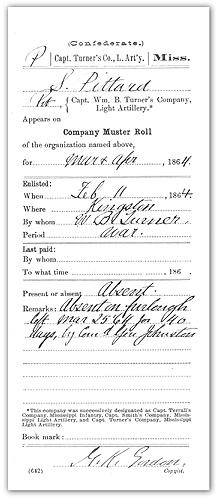 (Confederate.)
P | Capt. Turner's Co., L. Art'y. | Miss.
S. Pittard
Pvt { Capt. Wm. B. Turner's Company, Light Artillery.*
Appears on
Company Muster Roll
of the organization named above,
for Mar & Apr, 1864.
Enlisted:
When Feb 11, 1864.
Where Kingston
By whom W B Turner
Period War.
Last paid:
By whom
To what time , 186 .
Present or absent Absent.
Remarks: Absent on furlough
left Mar 25 64 for 40
days, by Com d Gen Johnston
*This company was successively designated as Capt. Terrall's
Company, Mississippi Infantry, Capt. Smith's Company, Mississippi
Light Artillery, and Capt. Turner's Company, Mississippi
Light Artillery.
Book mark:
Gordon.
(642) Copyist.